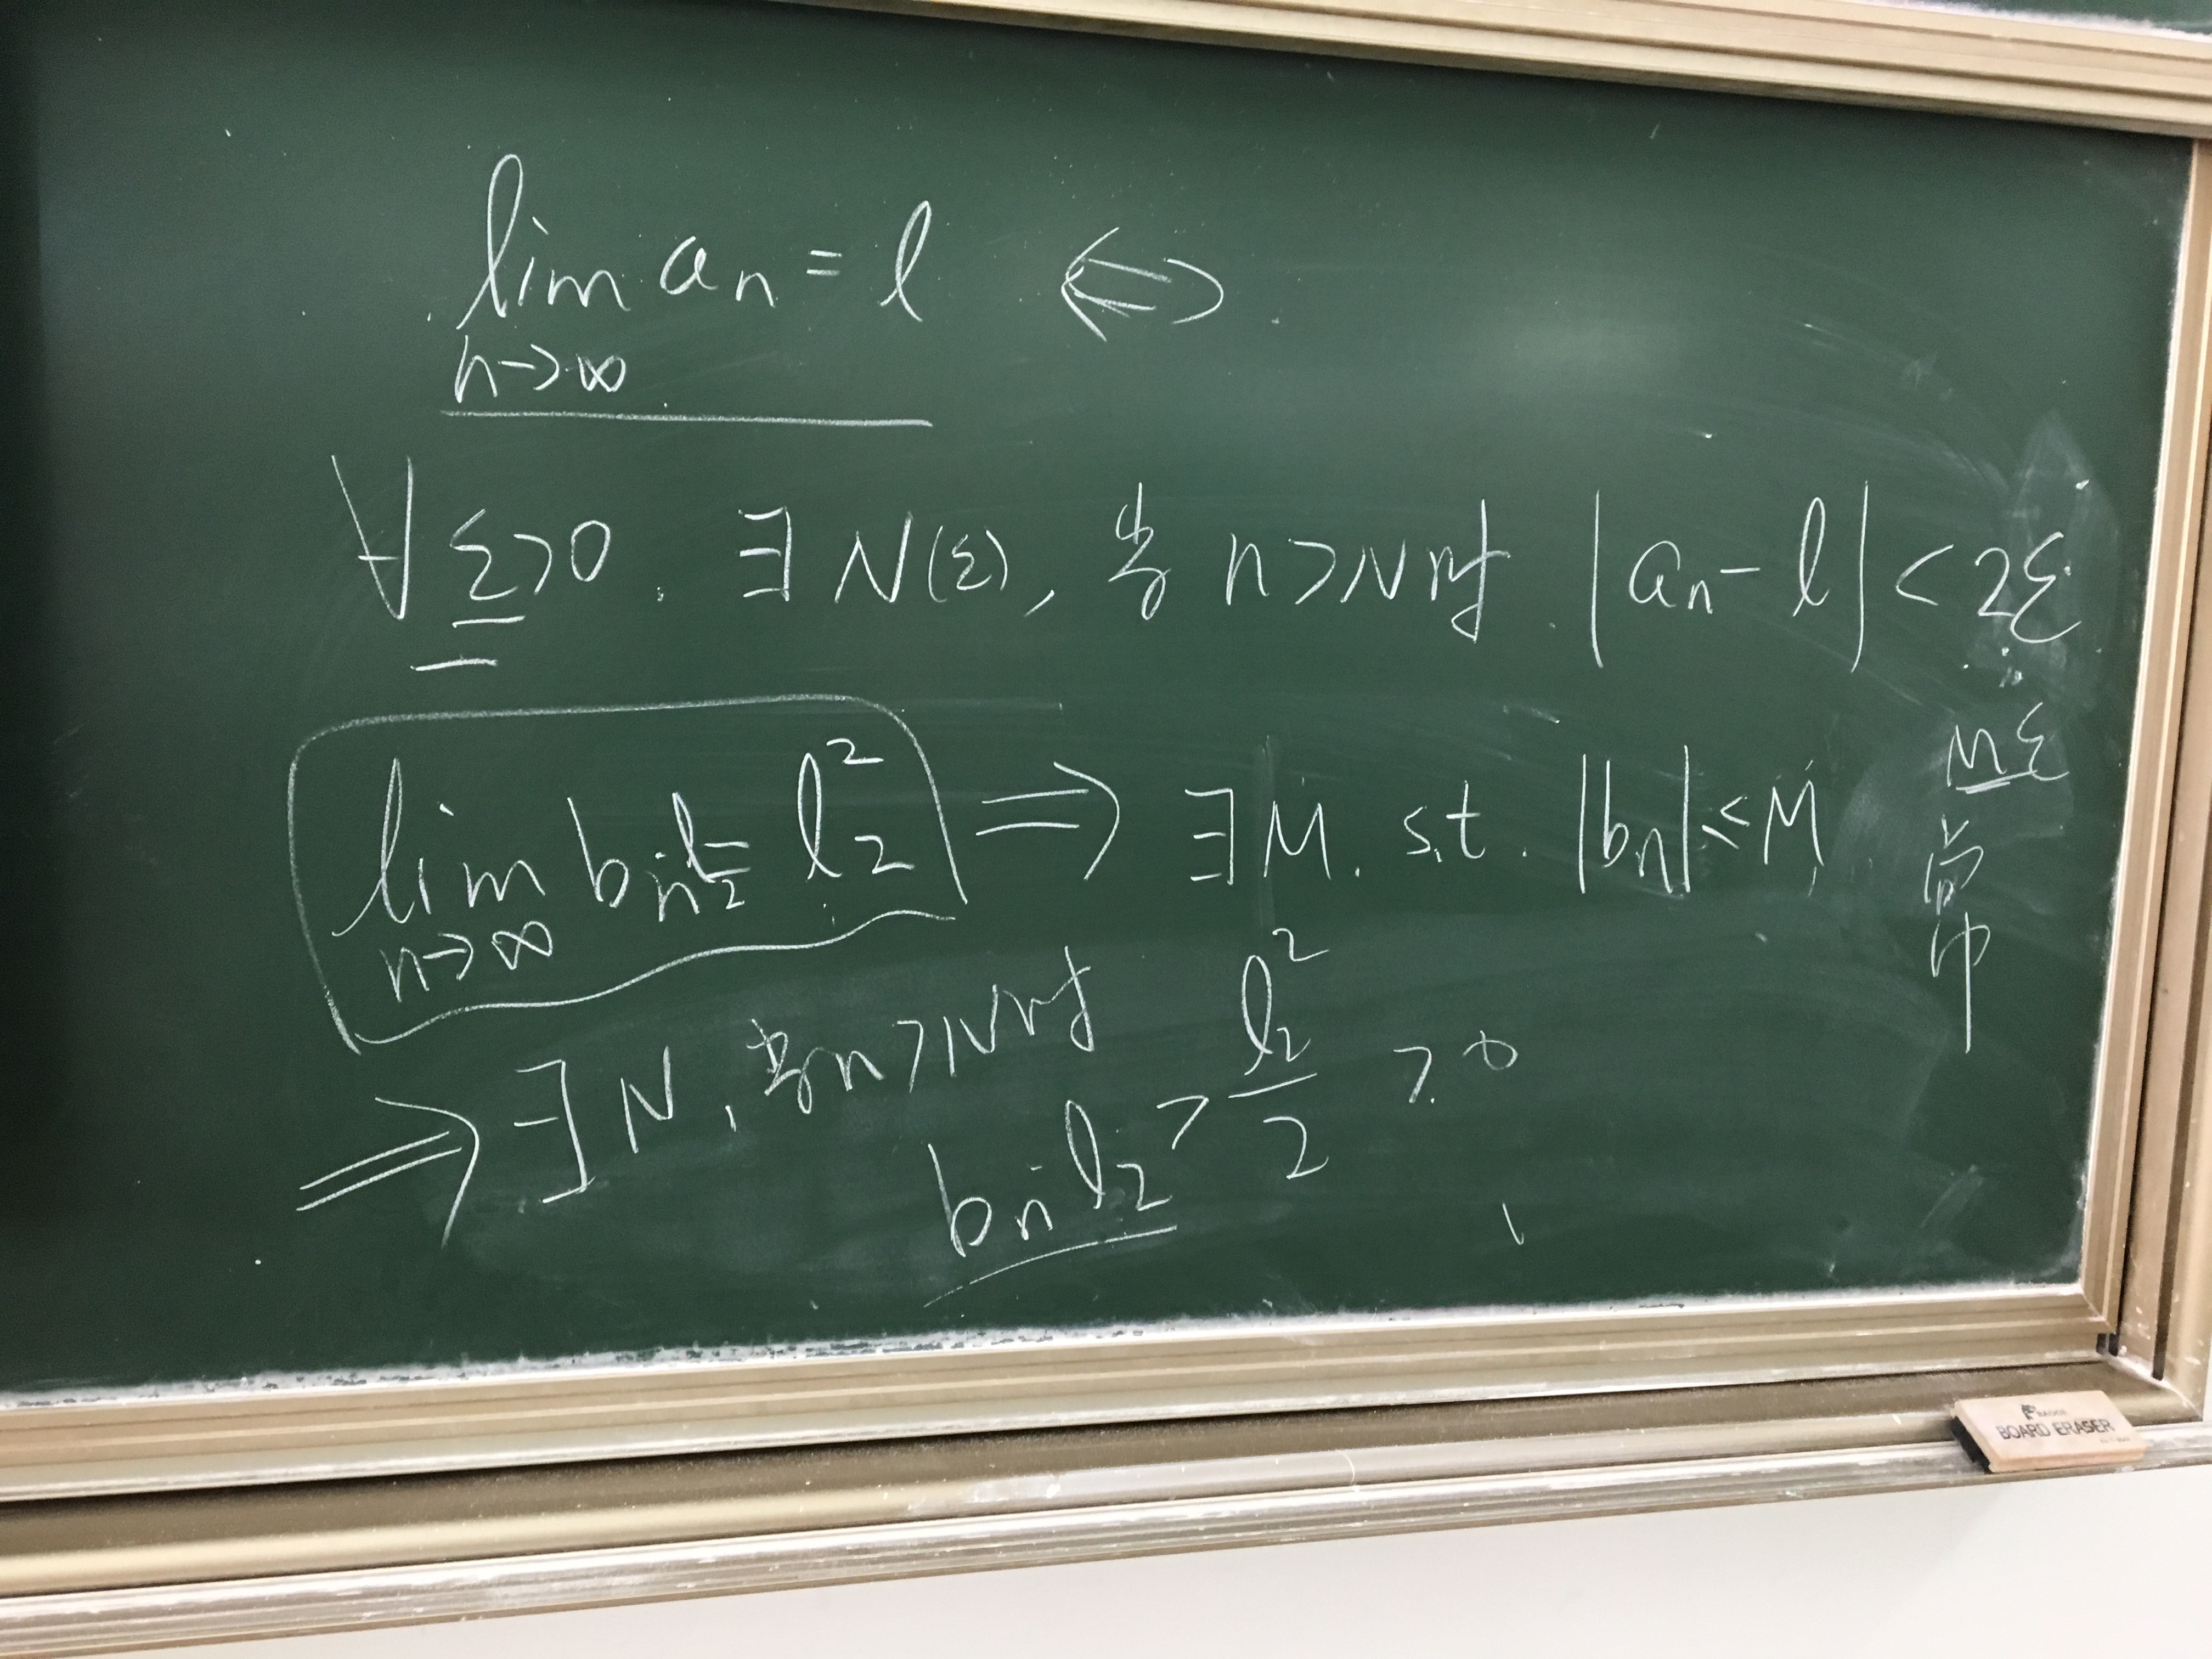 lim aₙ = l ⟺
n→∞
∀ ε>0. ∃ N(ε), 当 n>N时. |aₙ - l| < 2ε
mε
常
lim bₙ·l₂ = l₂² ⟹ ∃M. s.t. |bₙ| ≤ M
n→∞
⟹ ∃ N, 当n>N时
bₙ·l₂ > l₂²/2 > 0
BOARD ERASER